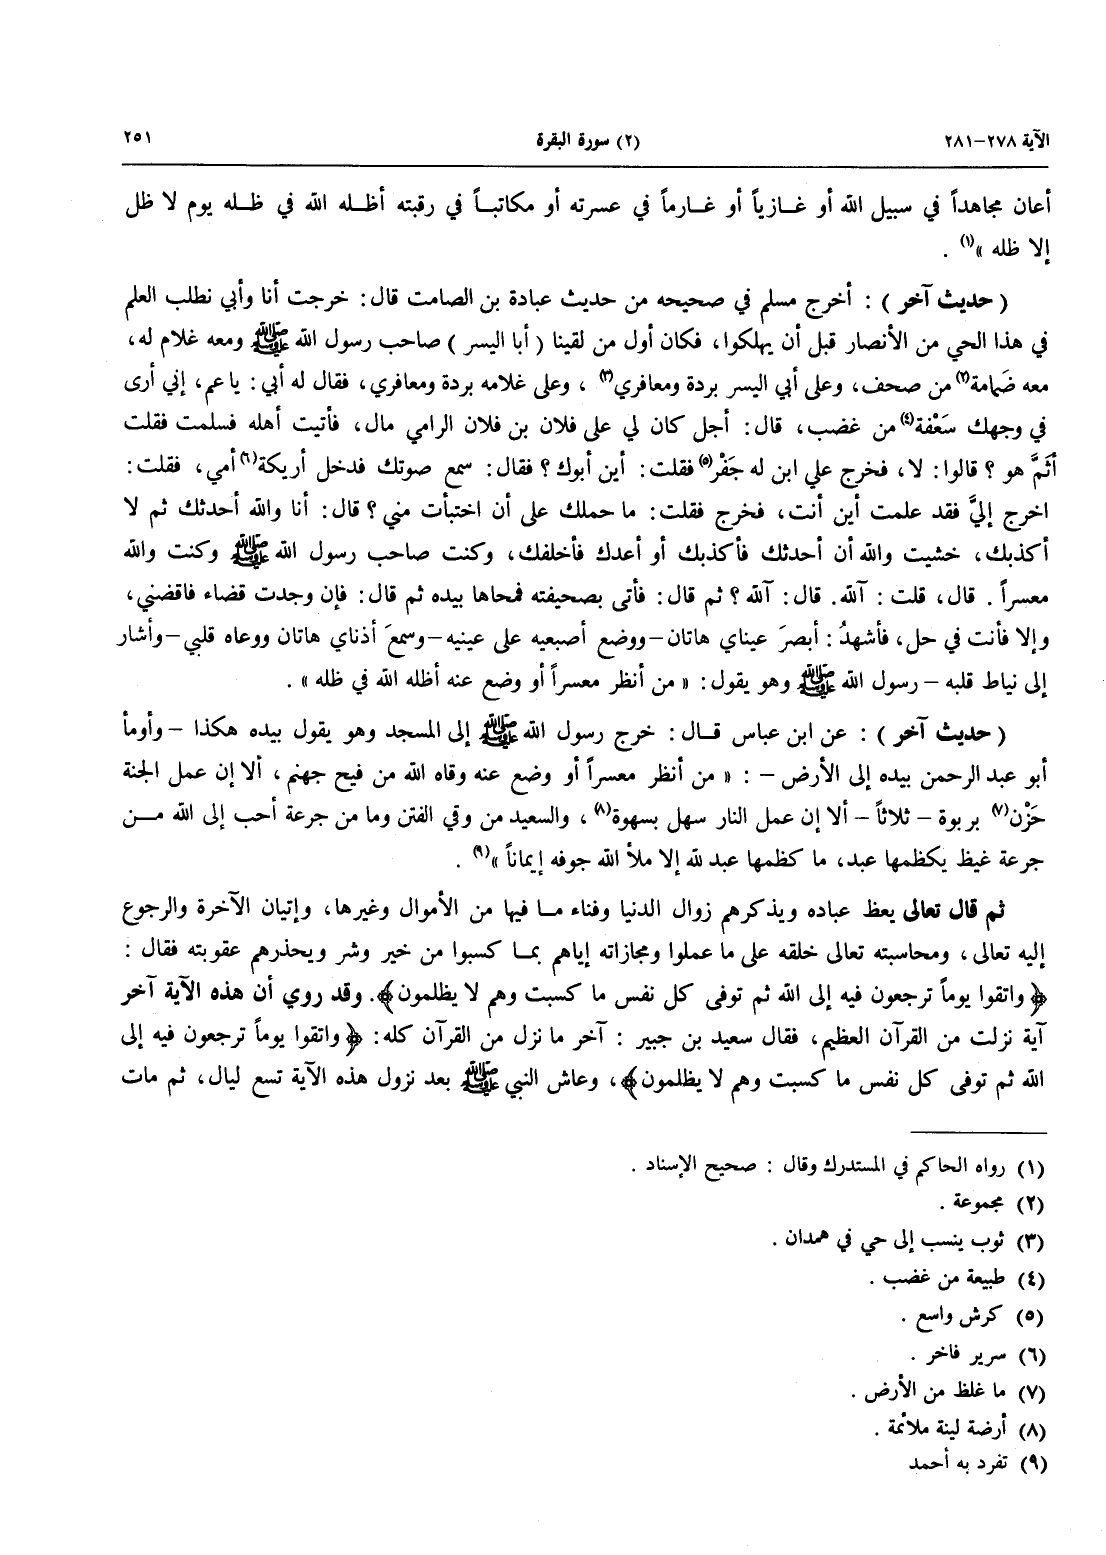 الآية ٢٧٨-٢٨١
(٢) سورة البقرة
٢٥١
أعان مجاهداً في سبيل الله أو غازياً أو غارماً في عسرته أو مكاتباً في رقبته أظله الله في ظله يوم لا ظل
إلا ظله »(١) .
( حديث آخر ) : أخرج مسلم في صحيحه من حديث عبادة بن الصامت قال : خرجت أنا وأبي نطلب العلم
في هذا الحي من الأنصار قبل أن يهلكوا، فكان أول من لقينا ( أبا اليسر ) صاحب رسول الله ﷺ ومعه غلام له،
معه ضَمامة(٢) من صحف، وعلى أبي اليسر بردة ومعافري(٣) ، وعلى غلامه بردة ومعافري، فقال له أبي : يا عم، إني أرى
في وجهك سَعْفة(٤) من غضب، قال : أجل كان لي على فلان بن فلان الرامي مال، فأتيت أهله فسلمت فقلت
أثَمَّ هو ؟ قالوا : لا، فخرج علي ابن له جَفْر(٥) فقلت : أين أبوك ؟ فقال : سمع صوتك فدخل أريكة(٦) أمي، فقلت :
اخرج إليَّ فقد علمت أين أنت، فخرج فقلت : ما حملك على أن اختبأت مني ؟ قال : أنا والله أحدثك ثم لا
أكذبك، خشيت والله أن أحدثك فأكذبك أو أعدك فأخلفك، وكنت صاحب رسول الله ﷺ وكنت والله
معسراً . قال، قلت : آلله. قال : آلله ؟ ثم قال : فأتى بصحيفته فمحاها بيده ثم قال : فإن وجدت قضاء فاقضني،
وإلا فأنت في حل، فأشهدُ : أبصرَ عيناي هاتان -ووضع أصبعيه على عينيه- وسمعَ أذناي هاتان ووعاه قلبي -وأشار
إلى نياط قلبه - رسول الله ﷺ وهو يقول : « من أنظر معسراً أو وضع عنه أظله الله في ظله » .
( حديث آخر ) : عن ابن عباس قال : خرج رسول الله ﷺ إلى المسجد وهو يقول بيده هكذا - وأومأ
أبو عبد الرحمن بيده إلى الأرض - : « من أنظر معسراً أو وضع عنه وقاه الله من فيح جهنم ، ألا إن عمل الجنة
حَزْن(٧) بربوة - ثلاثاً - ألا إن عمل النار سهل بسهوة(٨) ، والسعيد من وقي الفتن وما من جرعة أحب إلى الله من
جرعة غيظ يكظمها عبد، ما كظمها عبد لله إلا ملأ الله جوفه إيماناً »(٩) .
ثم قال تعالى يعظ عباده ويذكرهم زوال الدنيا وفناء ما فيها من الأموال وغيرها، وإتيان الآخرة والرجوع
إليه تعالى ، ومحاسبته تعالى خلقه على ما عملوا ومجازاته إياهم بما كسبوا من خير وشر ويحذرهم عقوبته فقال :
﴿ واتقوا يوماً ترجعون فيه إلى الله ثم توفى كل نفس ما كسبت وهم لا يظلمون﴾. وقد روي أن هذه الآية آخر
آية نزلت من القرآن العظيم، فقال سعيد بن جبير : آخر ما نزل من القرآن كله : ﴿ واتقوا يوماً ترجعون فيه إلى
الله ثم توفى كل نفس ما كسبت وهم لا يظلمون﴾، وعاش النبي ﷺ بعد نزول هذه الآية تسع ليال، ثم مات
(١) رواه الحاكم في المستدرك وقال : صحيح الإسناد .
(٢) مجموعة .
(٣) ثوب ينسب إلى حي في همدان .
(٤) طبيعة من غضب .
(٥) كرش واسع .
(٦) سرير فاخر .
(٧) ما غلظ من الأرض .
(٨) أرضة لينة ملائمة .
(٩) تفرد به أحمد